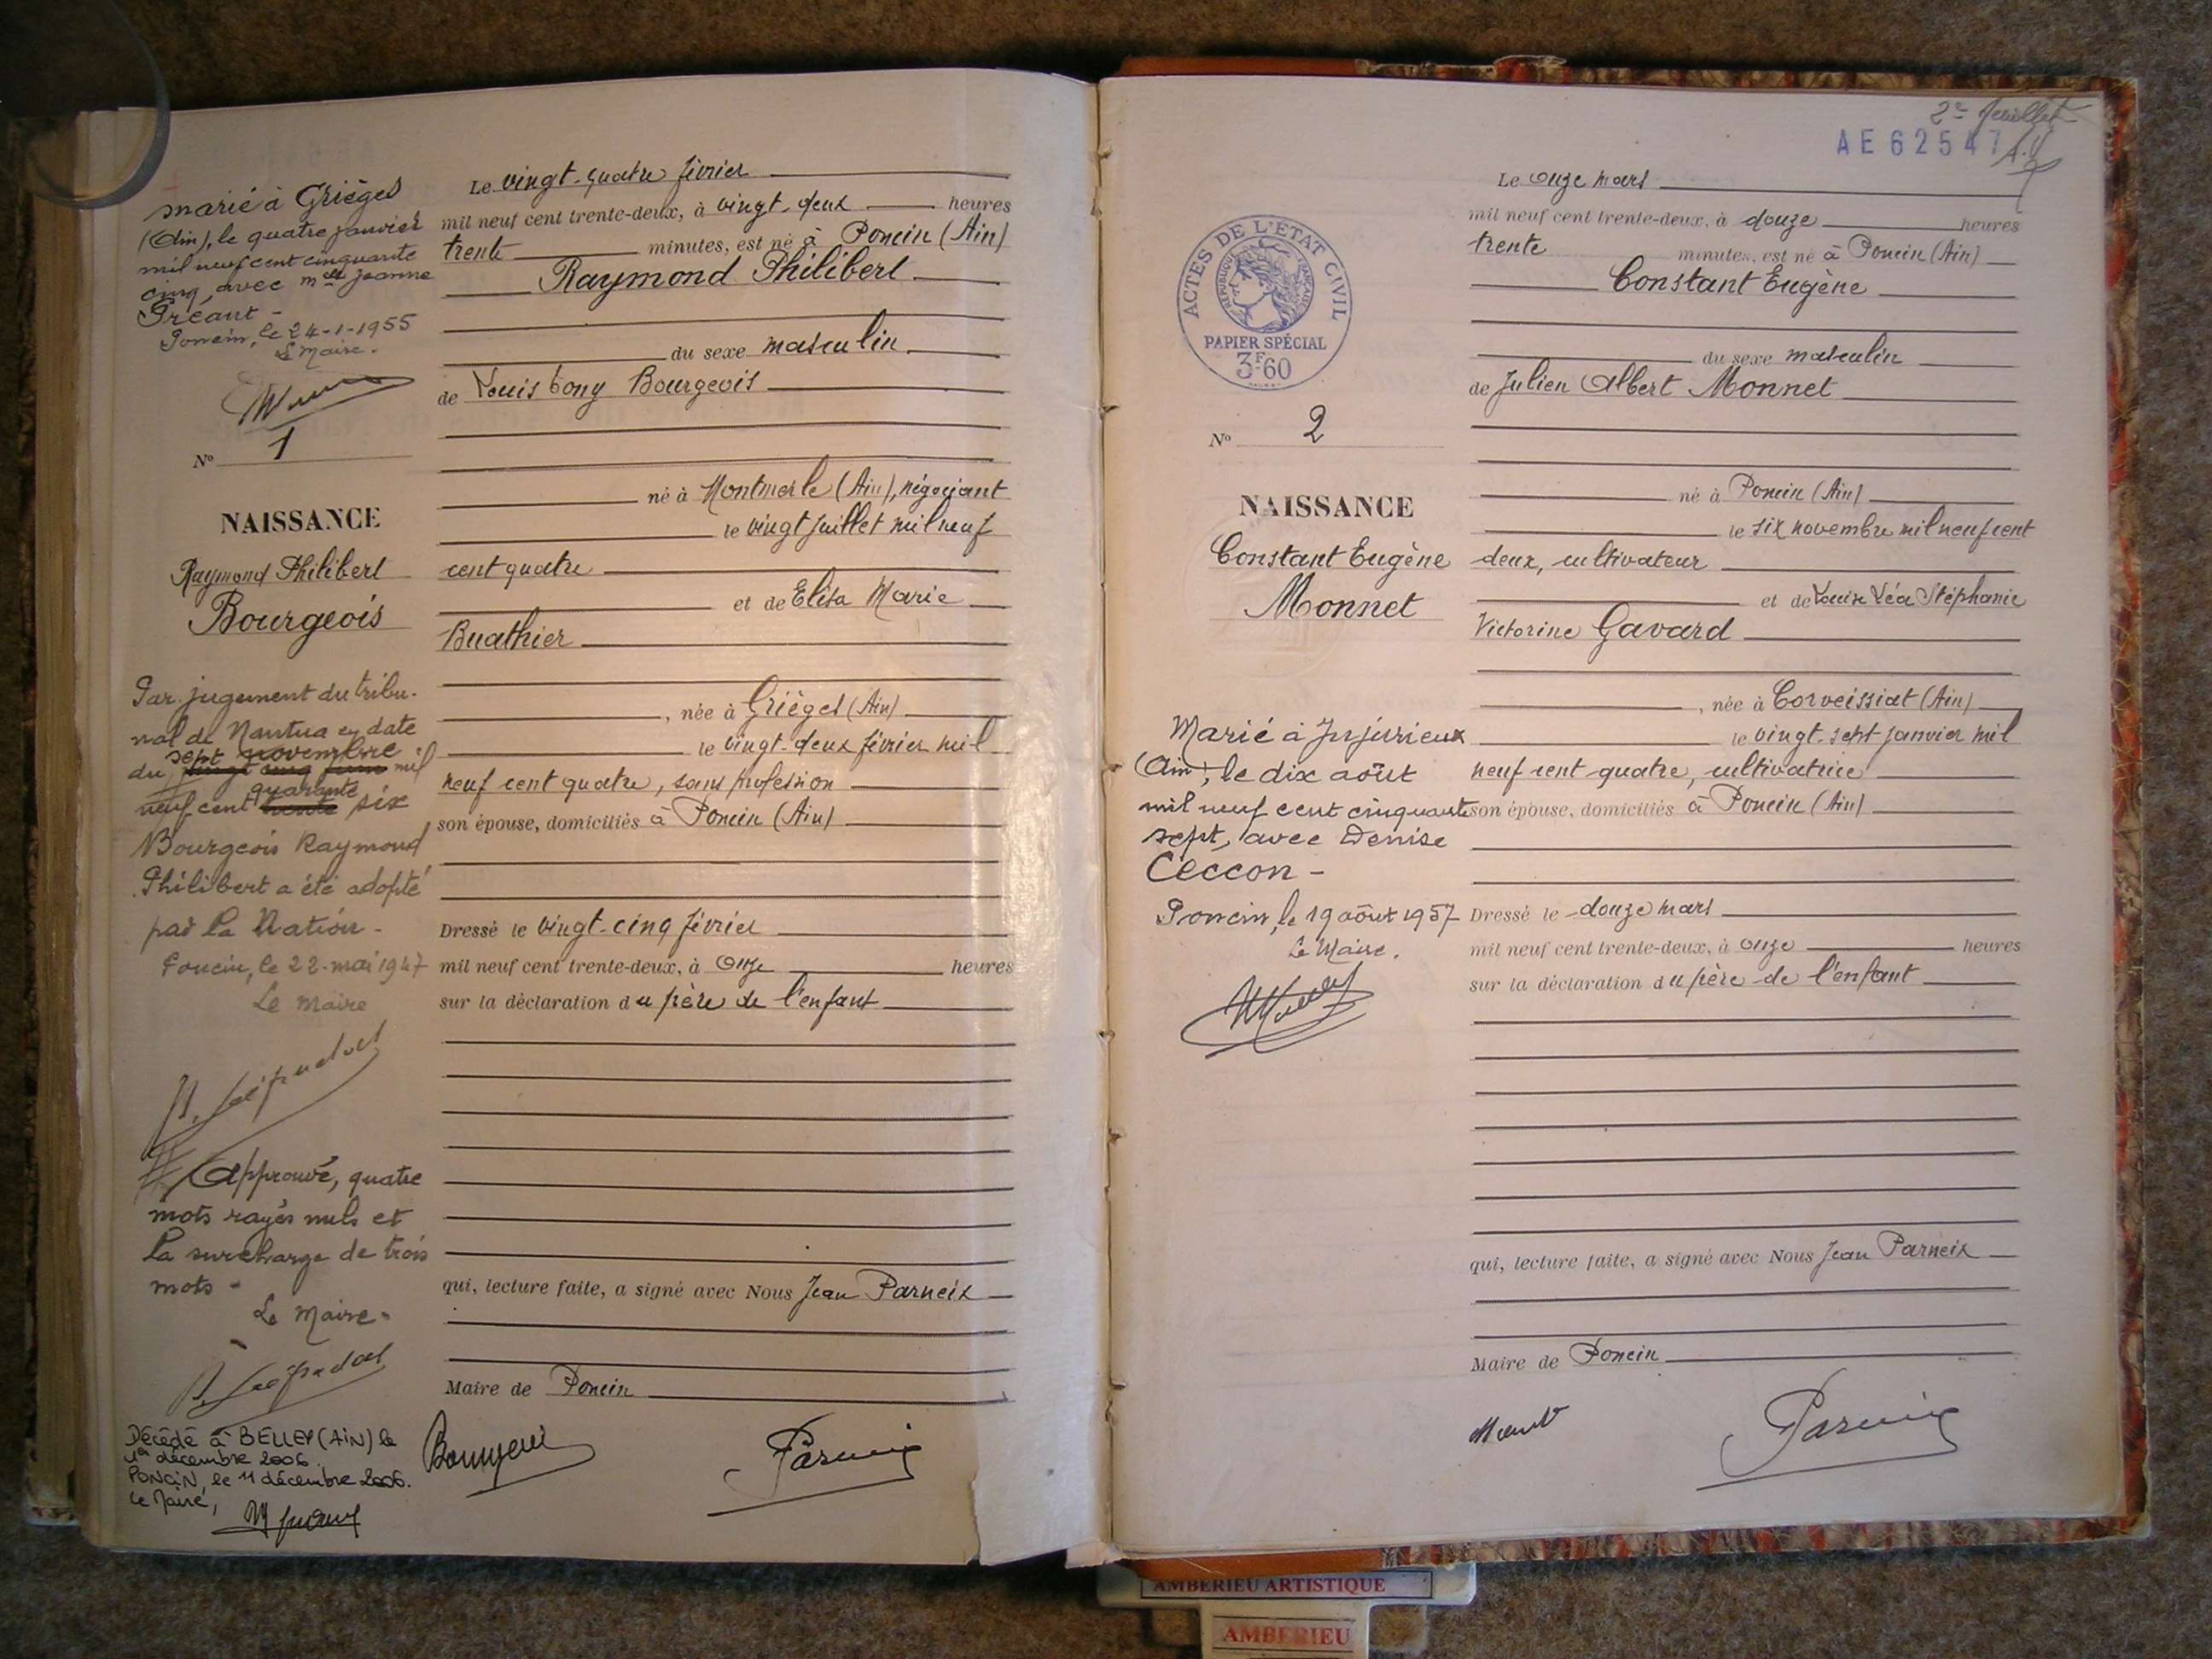 marié à Grièges
(Ain), le quatre janvier
mil neuf cent cinquante
cinq, avec Mlle Jeanne
Gréant -
Poncin, le 24-1-1955
Le Maire.
No 1
NAISSANCE
Raymond Philibert
Bourgeois
Par jugement du tribu-
nal de Nantua en date
sept novembre
du vingt cinq juin mil
quarante
neuf cent trente six
Bourgeois Raymond
Philibert a été adopté
par la Nation -
Poncin, le 22-mai 1947
Le Maire
Approuvé, quatre
mots rayés nuls et
la surcharge de trois
mots -
Le Maire -
Décédé à BELLEY (AIN) le
1er décembre 2006.
PONCIN, le 11 décembre 2006.
Le Maire,
Le vingt-quatre février
mil neuf cent trente-deux, à vingt-deux heures
trente minutes, est né à Poncin (Ain)
Raymond Philibert
du sexe masculin
de Louis Tony Bourgeois
né à Montmerle (Ain), négociant
le vingt juillet mil neuf
cent quatre
et de Elisa Marie
Buathier
, née à Grièges (Ain)
le vingt-deux février mil
neuf cent quatre, sans profession
son épouse, domiciliés à Poncin (Ain)
Dressé le vingt-cinq février
mil neuf cent trente-deux, à onze heures
sur la déclaration du père de l'enfant
qui, lecture faite, a signé avec Nous Jean Parneix
Maire de Poncin
Bourgeois
Parneix
2e feuillet
AE 62547
ACTES DE L'ETAT CIVIL
REPUBLIQUE FRANÇAISE
PAPIER SPÉCIAL
3F60
No 2
NAISSANCE
Constant Eugène
Monnet
Marié à Jujurieux
(Ain), le dix août
mil neuf cent cinquante
sept, avec Denise
Ceccon -
Poncin, le 19 août 1957
Le Maire.
Le onze mars
mil neuf cent trente-deux, à douze heures
trente minutes, est né à Poncin (Ain)
Constant Eugène
du sexe masculin
de Julien Albert Monnet
né à Poncin (Ain)
le six novembre mil neuf cent
deux, cultivateur
et de Louise Léa Stéphanie
Victorine Gavard
, née à Corveissiat (Ain)
le vingt-sept janvier mil
neuf cent quatre, cultivatrice
son épouse, domiciliés à Poncin (Ain)
Dressé le douze mars
mil neuf cent trente-deux, à onze heures
sur la déclaration du père de l'enfant
qui, lecture faite, a signé avec Nous Jean Parneix
Maire de Poncin
Monnet
Parneix
AMBERIEU ARTISTIQUE
AMBERIEU